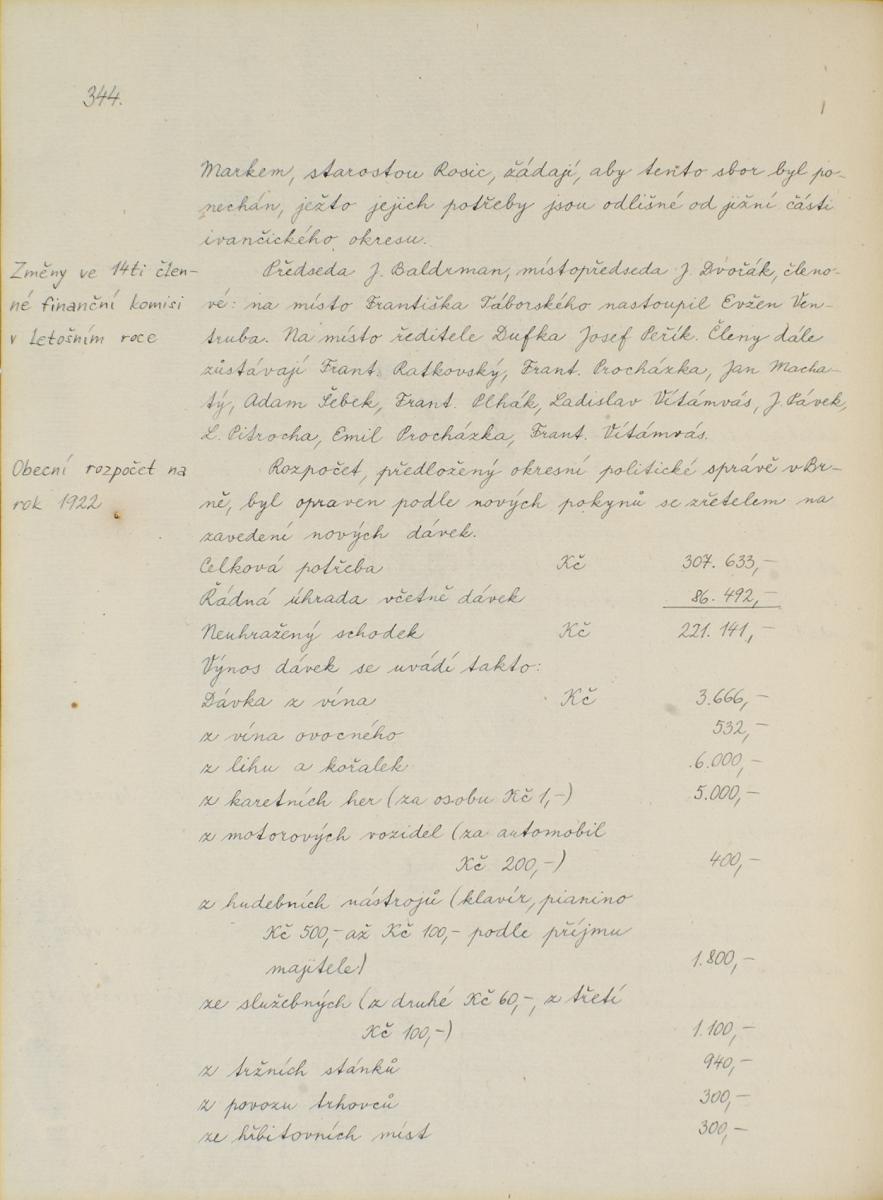 344.
Markem, starostou Rosic, žádají, aby tento sbor byl po-
nechán, ježto jejich potřeby jsou odlišné od jižní části
ivančického okresu.
Změny ve 14ti člen-
né finanční komisi
v letošním roce
Předseda J. Baldrman, místopředseda J. Dvořák, členo-
vé: na místo Františka Táborského nastoupil Evžen Ven-
truba. Na místo ředitele Dufka Josef Peřík. Členy dále
zůstávají Frant. Ratkovský, Frant. Procházka, Jan Macha-
tý, Adam Šebek, Frant. Plhák, Ladislav Vítámvás, J. Pávek,
L. Pitrocha, Emil Procházka, Frant. Vítámvás.
Obecní rozpočet na
rok 1922
Rozpočet, předložený okresní politické správě v Br-
ně, byl opraven podle nových pokynů se zřetelem na
zavedení nových dávek.
Celková potřeba Kč 307.633,-
Řádná úhrada včetně dávek 86.492,-
Neuhražený schodek Kč 221.141,-
Výnos dávek se uvádí takto:
Dávka z vína Kč 3.666,-
z vína ovocného 532,-
z lihu a kořalek 6.000,-
z karetních her (za osobu Kč 1,-) 5.000,-
z motorových vozidel (za automobil
Kč 200,-) 400,-
z hudebních nástrojů (klavír, pianino
Kč 500,- až Kč 100,- podle příjmu
majitele) 1.800,-
ze služebných (z druhé Kč 60,-, z třetí
Kč 100,-) 1.100,-
z tržních stánků 940,-
z povozu trhovců 300,-
ze hřbitovních míst 300,-